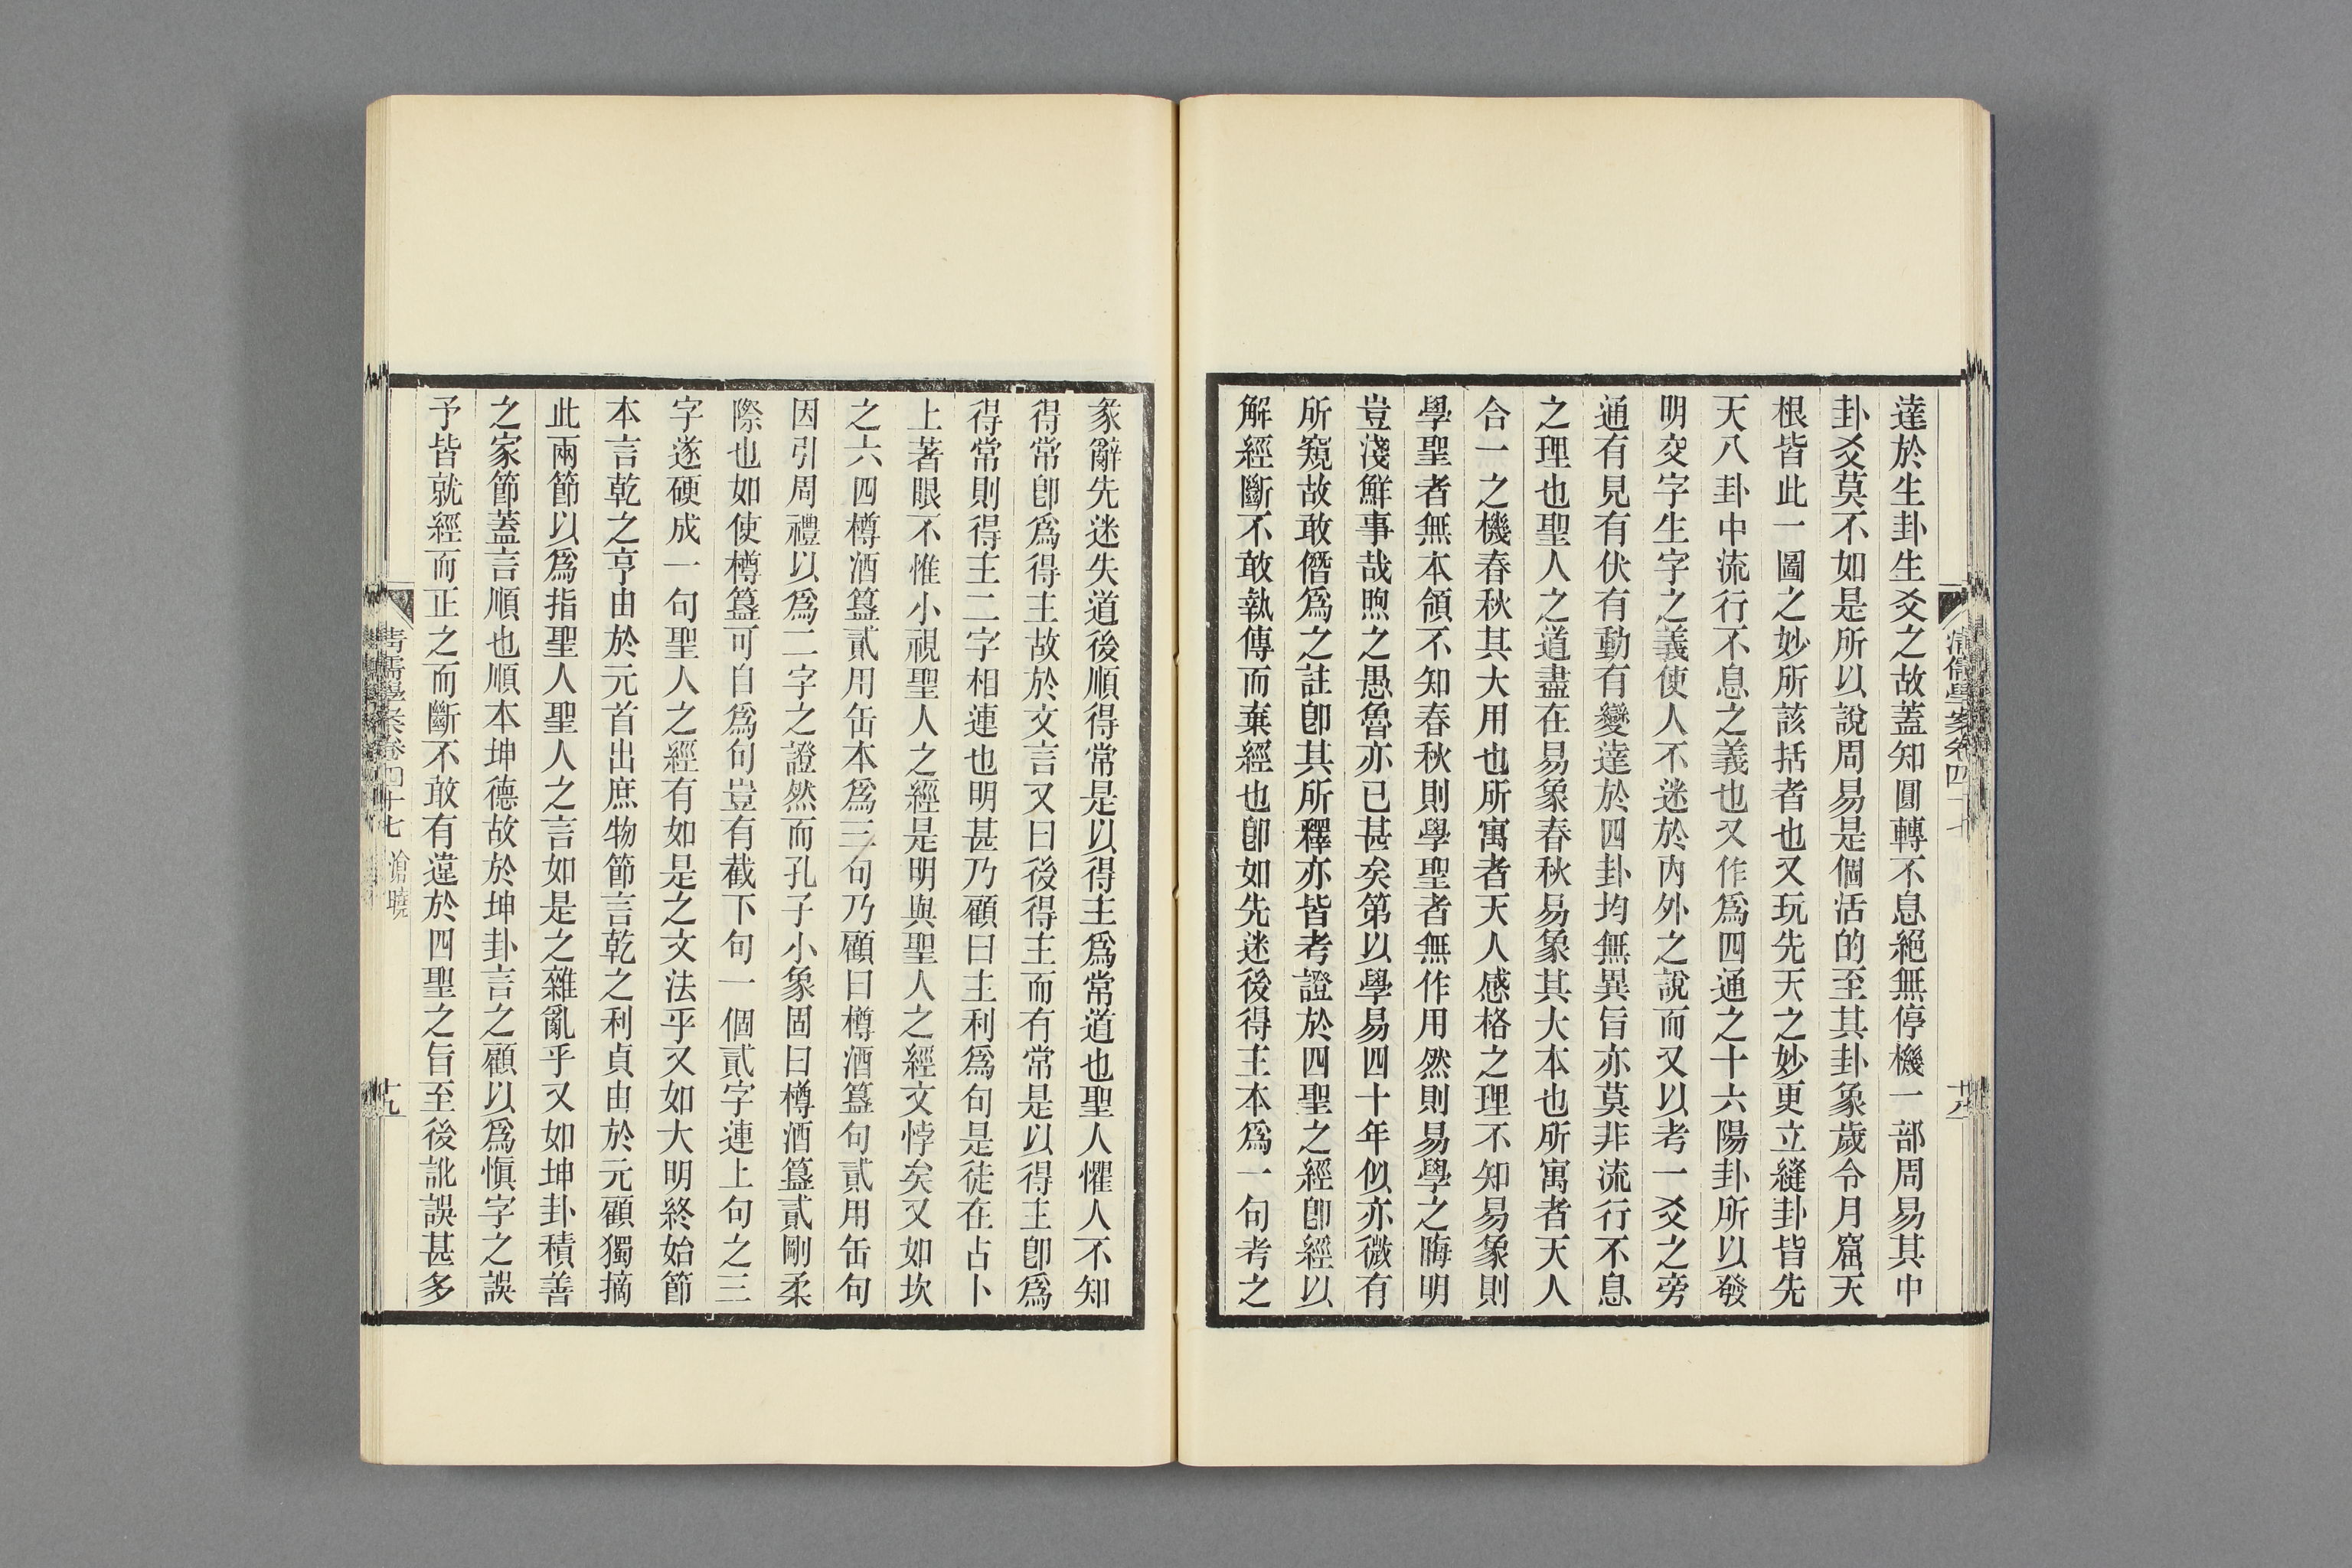 達於生卦生爻之故蓋知圓轉不息絕無停機一部周易其中
卦爻莫不如是所以說周易是個活的至其卦象歲令月窟天
根皆此一圖之妙所該括者也又玩先天之妙更立縫卦皆先
天八卦中流行不息之義也又作爲四通之十六陽卦所以發
明交字生字之義使人不迷於內外之說而又以考一爻之旁
通有見有伏有動有變達於四卦均無異旨亦莫非流行不息
之理也聖人之道盡在易象春秋易象其大本也所寓者天人
合一之機春秋其大用也所寓者天人感格之理不知易象則
學聖者無本領不知春秋則學聖者無作用然則易學之晦明
豈淺鮮事哉煦之愚魯亦已甚矣第以學易四十年似亦微有
所窺故敢僭爲之註卽其所釋亦皆考證於四聖之經卽經以
解經斷不敢執傳而棄經也卽如先迷後得主本爲一句考之
清儒學案卷四十七
彖辭先迷失道後順得常是以得主爲常道也聖人懼人不知
得常卽爲得主故於文言又曰後得主而有常是以得主卽爲
得常則得主二字相連也明甚乃顧曰主利爲句是徒在占卜
上著眼不惟小視聖人之經是明與聖人之經文悖矣又如坎
之六四樽酒簋貳用缶本爲三句乃顧曰樽酒簋句貳用缶句
因引周禮以爲二字之證然而孔子小象固曰樽酒簋貳剛柔
際也如使樽簋可自爲句豈有截下句一個貳字連上句之三
字遂硬成一句聖人之經有如是之文法乎又如大明終始節
本言乾之亨由於元首出庶物節言乾之利貞由於元顧獨摘
此兩節以爲指聖人聖人之言如是之雜亂乎又如坤卦積善
之家節蓋言順也順本坤德故於坤卦言之顧以爲愼字之誤
予皆就經而正之而斷不敢有違於四聖之旨至後訛誤甚多
清儒學案卷四十七 滄曉
十九